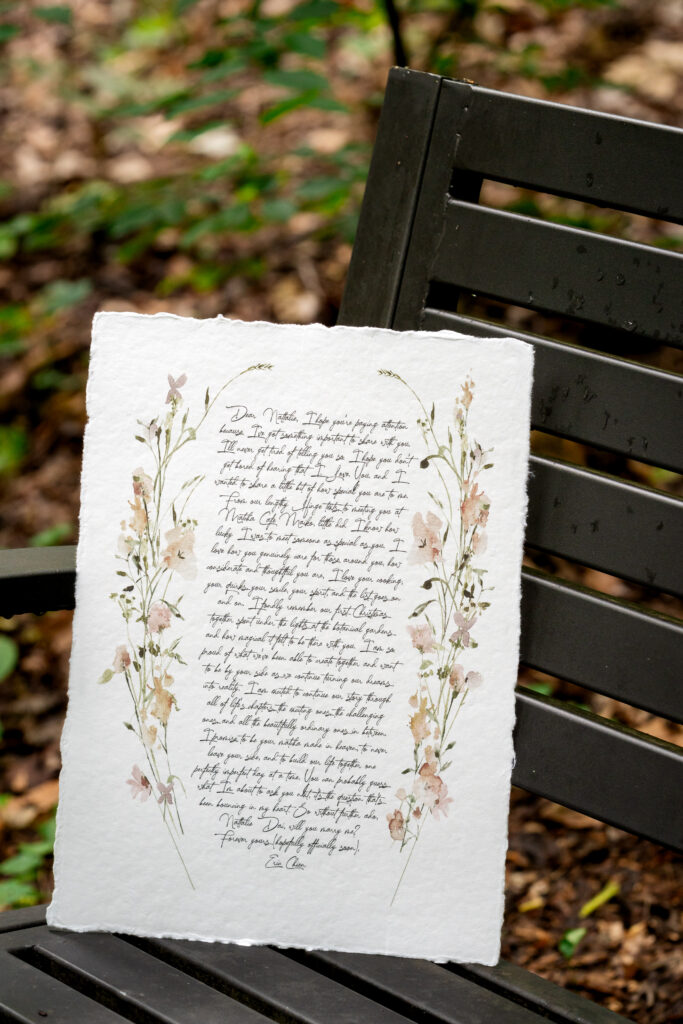 Dear Natalie, I hope you're paying attention
because I've got something important to share with you.
I'll never get tired of telling you so I hope you don't
get bored of hearing that I Love You and I
wanted to share a little bit of how special you are to me.
From our lengthy Hinge texts to meeting you at
Matcha Cafe Maiko, little did I know how
lucky I was to meet someone as special as you. I
love how you genuinely care for those around you, how
considerate and thoughtful you are, I love your cooking,
your quirks, your smile, your spirit, and the list goes on
and on. I fondly remember our first Christmas
together spent under the lights at the botanical gardens
and how magical it felt to be there with you. I am so
proud of what we've been able to create together and want
to be by your side as we continue turning our dreams
into reality. I am excited to continue our story through
all of life's chapters, the exciting ones, the challenging
ones, and all the beautifully ordinary ones in between.
I promise to be your matcha made in heaven, to never
leave your side, and to build our life together, one
perfectly imperfect day at a time. You can probably guess
what I'm about to ask you next, it's the question that's
been bouncing in my heart. So without further ado,
Natalie Dai, will you marry me?
Forever yours (hopefully officially soon),
Eric Chen